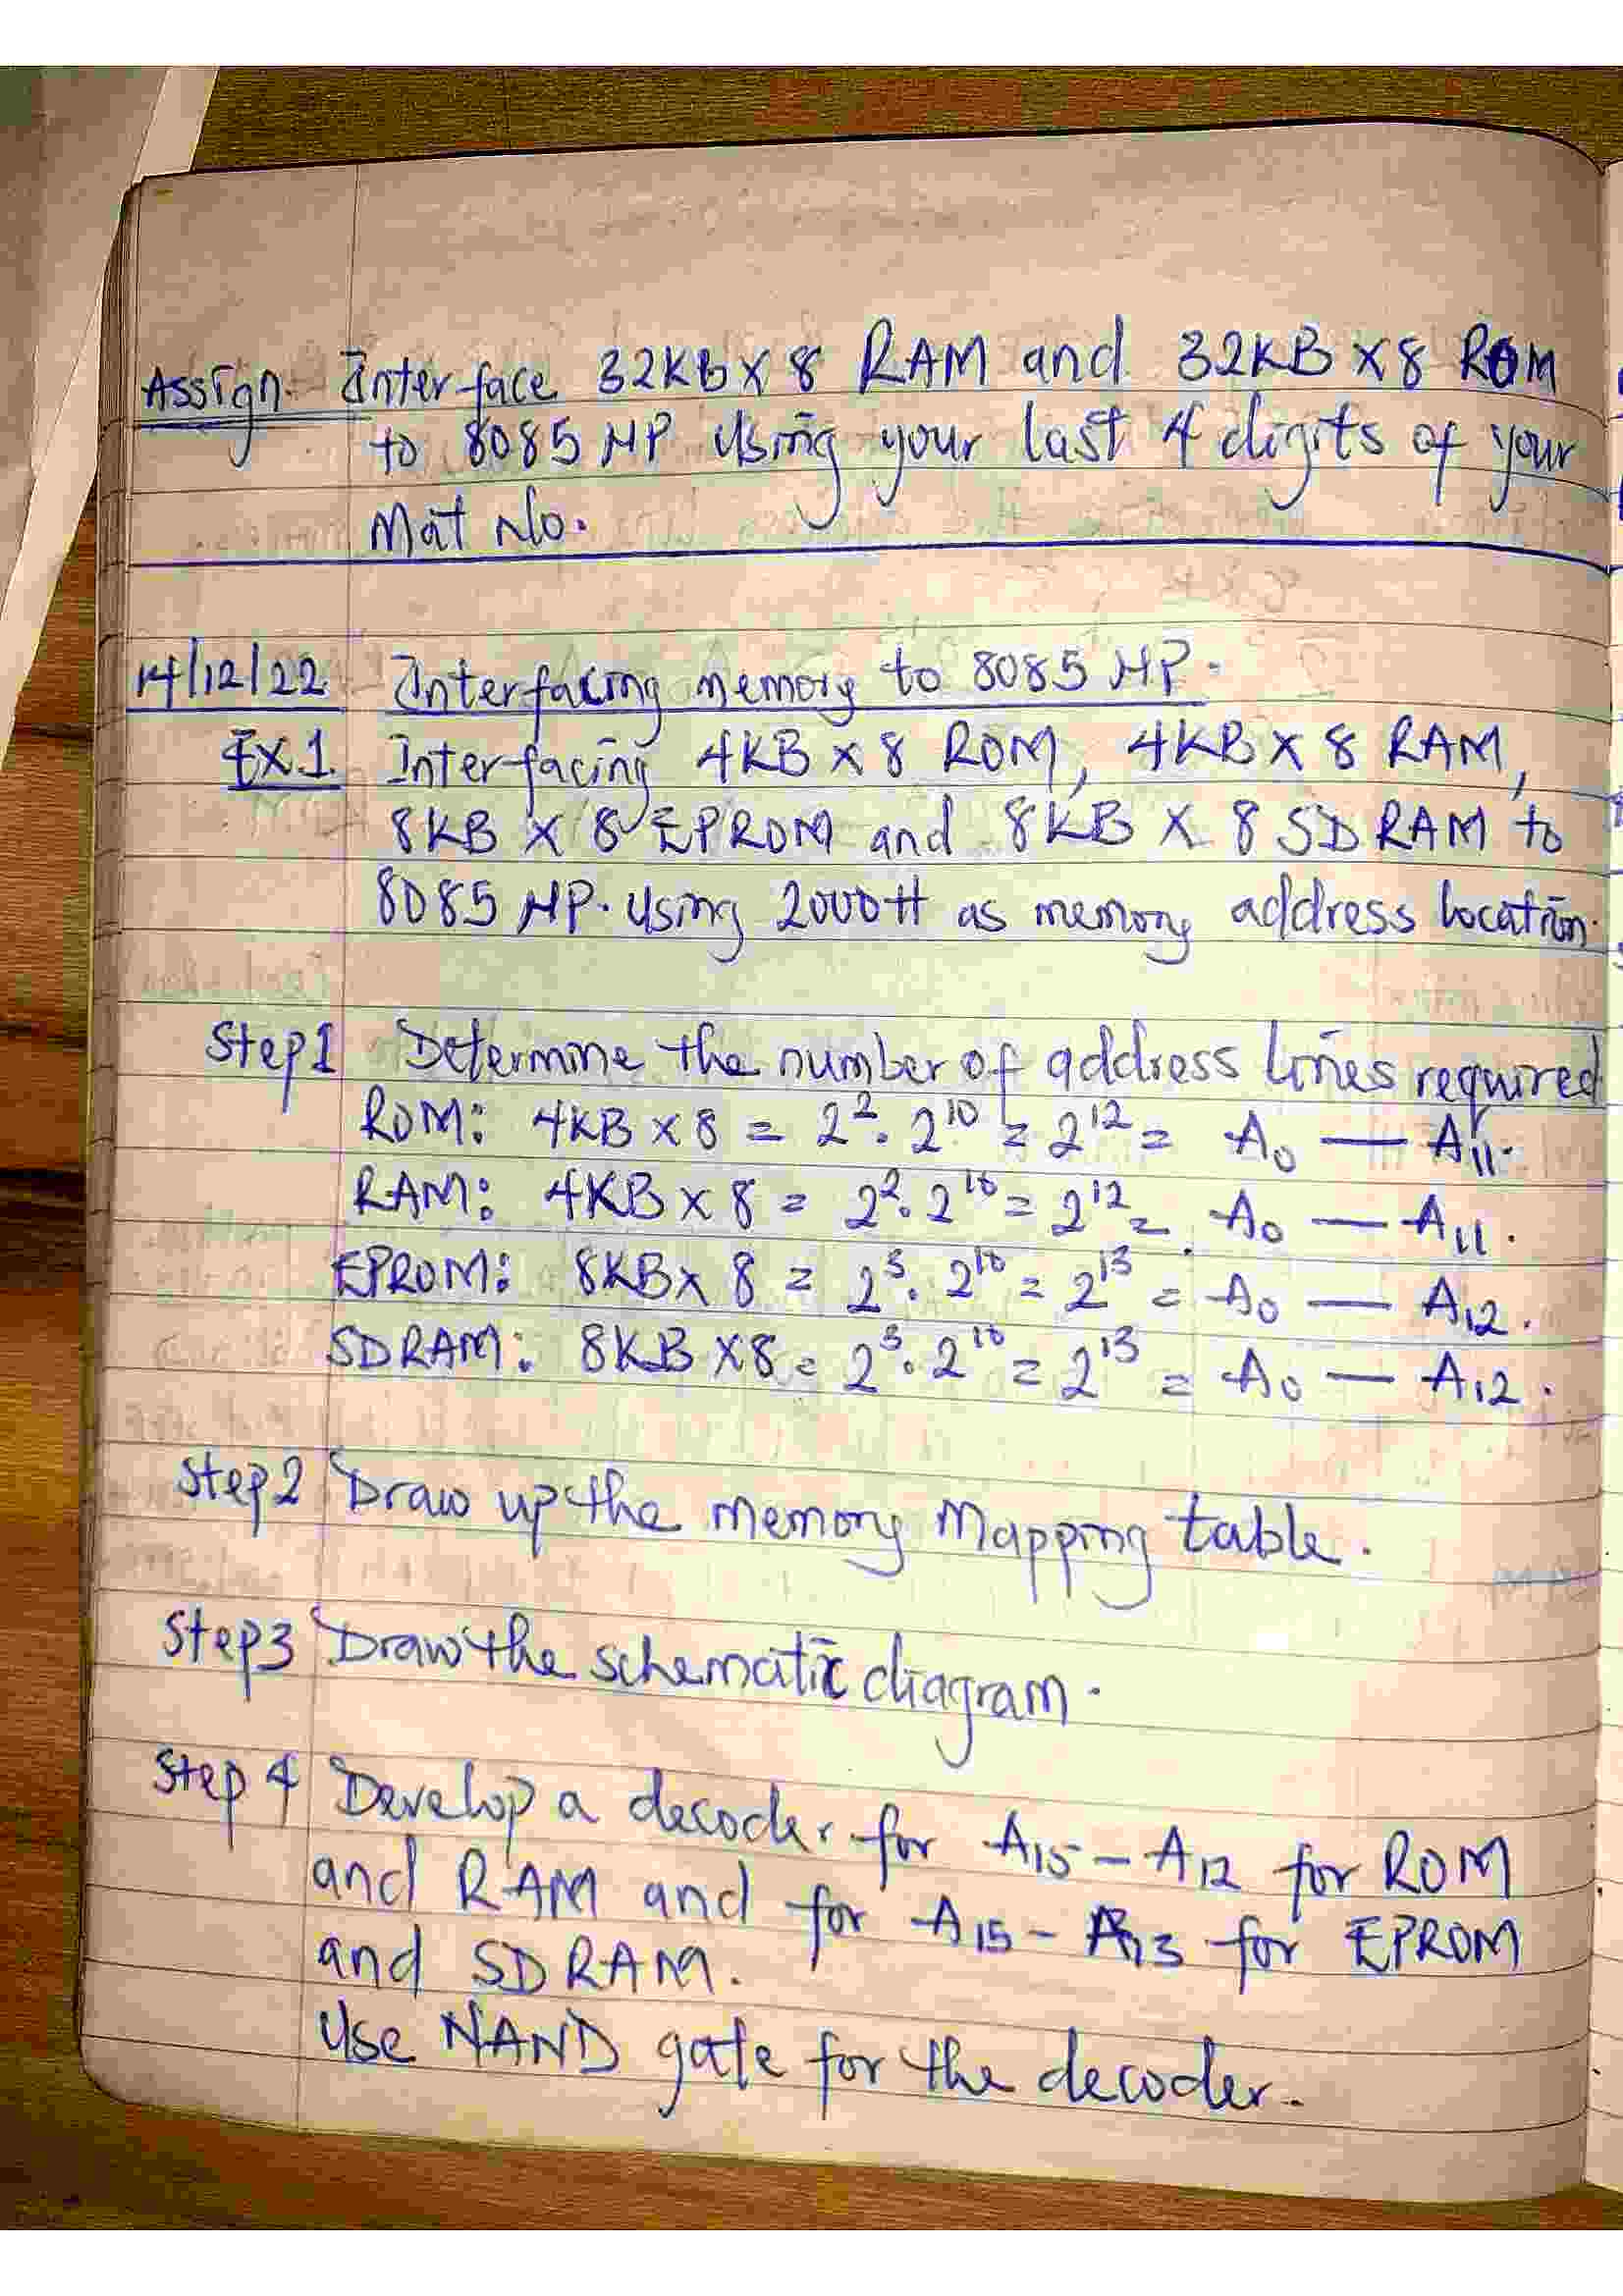 Assign. Interface 32KB X 8 RAM and 32KB X 8 ROM
to 8085 MP Using your last 4 digits of your
Mat No.
14/12/22 Interfacing memory to 8085 MP.
EX1. Interfacing 4KB X 8 ROM, 4KB X 8 RAM,
8KB X 8 EPROM and 8KB X 8 SDRAM to
8085 MP. Using 2000H as memory address location.
Step1 Determine the number of address lines required
ROM: 4KB X 8 = 2². 2¹⁰ = 2¹² = A₀ — A₁₁.
RAM: 4KB X 8 = 2². 2¹⁰ = 2¹² = A₀ — A₁₁.
EPROM: 8KB X 8 = 2³. 2¹⁰ = 2¹³ = A₀ — A₁₂.
SDRAM: 8KB X8 = 2³. 2¹⁰ = 2¹³ = A₀ — A₁₂.
Step2 Draw up the memory Mapping table.
Step3 Draw the schematic diagram.
Step 4 Develop a decoder for A₁₅ - A₁₂ for ROM
and RAM and for A₁₅ - A₁₃ for EPROM
and SDRAM.
Use NAND gate for the decoder.